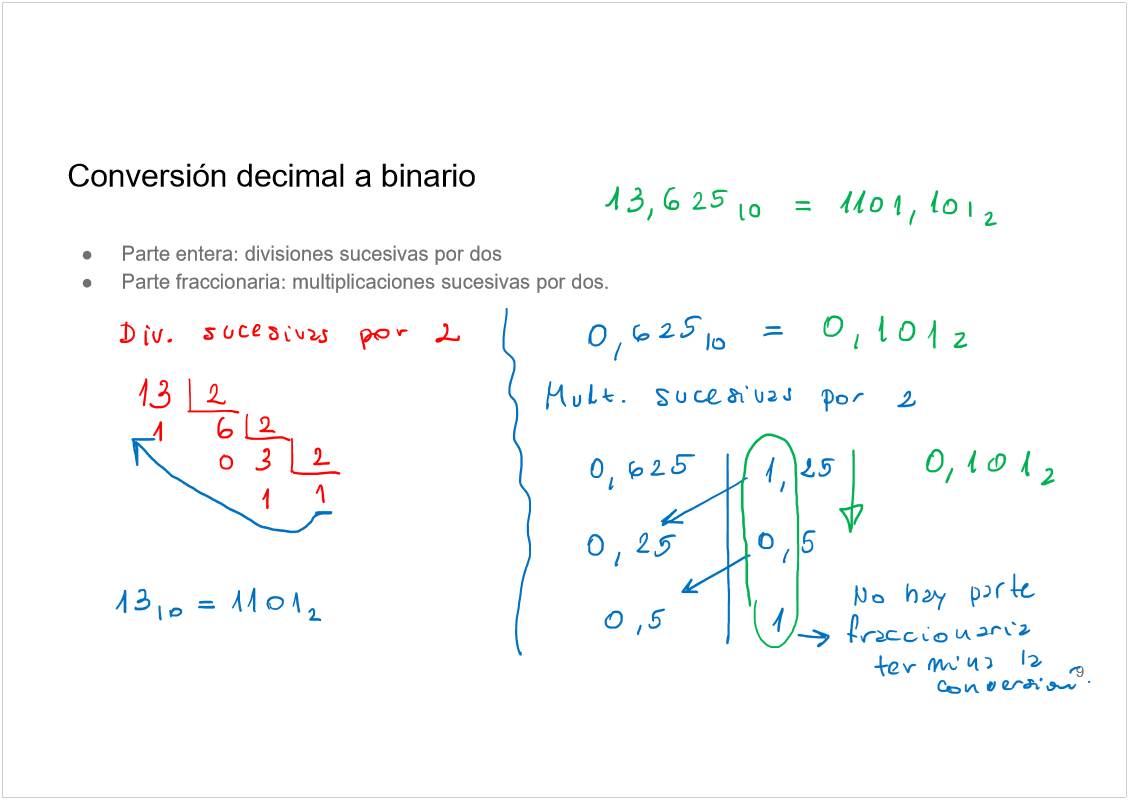 Conversión decimal a binario
13,625₁₀ = 1101,101₂
● Parte entera: divisiones sucesivas por dos
● Parte fraccionaria: multiplicaciones sucesivas por dos.
Div. sucesivas por 2
13 2
1 6 2
0 3 2
1 1
13₁₀ = 1101₂
0,625₁₀ = 0,101₂
Mult. sucesivas por 2
0,625 1,25 0,101₂
0,25 0,5
0,5 1
No hay parte
fraccionaria
termina la
conversion.
9